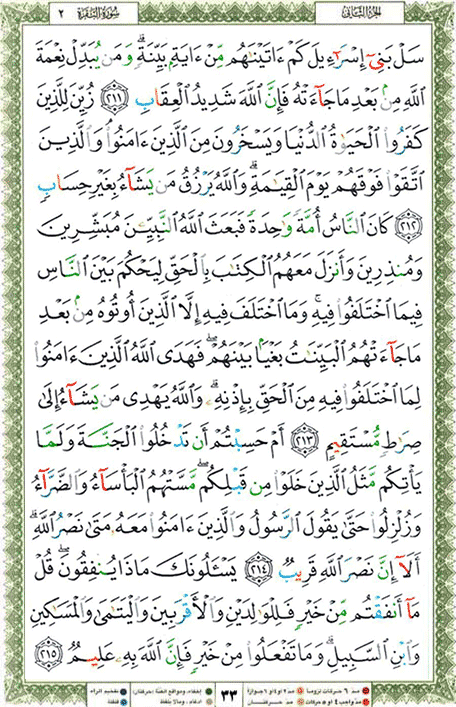 الجزء الثاني
سورة البقرة ٢
سَلْ بَنِىٓ إِسْرَٰٓءِيلَ كَمْ ءَاتَيْنَٰهُم مِّنْ ءَايَةٍۭ بَيِّنَةٍۗ وَمَن يُبَدِّلْ نِعْمَةَ
ٱللَّهِ مِنۢ بَعْدِ مَا جَآءَتْهُ فَإِنَّ ٱللَّهَ شَدِيدُ ٱلْعِقَابِ ٢١١ زُيِّنَ لِلَّذِينَ
كَفَرُوا۟ ٱلْحَيَوٰةُ ٱلدُّنْيَا وَيَسْخَرُونَ مِنَ ٱلَّذِينَ ءَامَنُوا۟ۘ وَٱلَّذِينَ
ٱتَّقَوْا۟ فَوْقَهُمْ يَوْمَ ٱلْقِيَٰمَةِۗ وَٱللَّهُ يَرْزُقُ مَن يَشَآءُ بِغَيْرِ حِسَابٍ
٢١٢ كَانَ ٱلنَّاسُ أُمَّةً وَٰحِدَةً فَبَعَثَ ٱللَّهُ ٱلنَّبِيِّۦنَ مُبَشِّرِينَ
وَمُنذِرِينَ وَأَنزَلَ مَعَهُمُ ٱلْكِتَٰبَ بِٱلْحَقِّ لِيَحْكُمَ بَيْنَ ٱلنَّاسِ
فِيمَا ٱخْتَلَفُوا۟ فِيهِۚ وَمَا ٱخْتَلَفَ فِيهِ إِلَّا ٱلَّذِينَ أُوتُوهُ مِنۢ بَعْدِ
مَا جَآءَتْهُمُ ٱلْبَيِّنَٰتُ بَغْيًۢا بَيْنَهُمْۖ فَهَدَى ٱللَّهُ ٱلَّذِينَ ءَامَنُوا۟
لِمَا ٱخْتَلَفُوا۟ فِيهِ مِنَ ٱلْحَقِّ بِإِذْنِهِۦۗ وَٱللَّهُ يَهْدِى مَن يَشَآءُ إِلَىٰ
صِرَٰطٍ مُّسْتَقِيمٍ ٢١٣ أَمْ حَسِبْتُمْ أَن تَدْخُلُوا۟ ٱلْجَنَّةَ وَلَمَّا
يَأْتِكُم مَّثَلُ ٱلَّذِينَ خَلَوْا۟ مِن قَبْلِكُمۖ مَّسَّتْهُمُ ٱلْبَأْسَآءُ وَٱلضَّرَّآءُ
وَزُلْزِلُوا۟ حَتَّىٰ يَقُولَ ٱلرَّسُولُ وَٱلَّذِينَ ءَامَنُوا۟ مَعَهُۥ مَتَىٰ نَصْرُ ٱللَّهِۗ
أَلَآ إِنَّ نَصْرَ ٱللَّهِ قَرِيبٌ ٢١٤ يَسْـَٔلُونَكَ مَاذَا يُنفِقُونَۖ قُلْ
مَآ أَنفَقْتُم مِّنْ خَيْرٍ فَلِلْوَٰلِدَيْنِ وَٱلْأَقْرَبِينَ وَٱلْيَتَٰمَىٰ وَٱلْمَسَٰكِينِ
وَٱبْنِ ٱلسَّبِيلِۗ وَمَا تَفْعَلُوا۟ مِنْ خَيْرٍ فَإِنَّ ٱللَّهَ بِهِۦ عَلِيمٌ ٢١٥
٣٣
مد ٦ حركات لزوماً
مد ٢ أو ٤ أو ٦ جوازاً
إخفاء، ومواقع الغنة (حركتان)
تفخيم الراء
مد واجب ٤ أو ٥ حركات
مد حركتان
إدغام، وما لا يلفظ
قلقلة